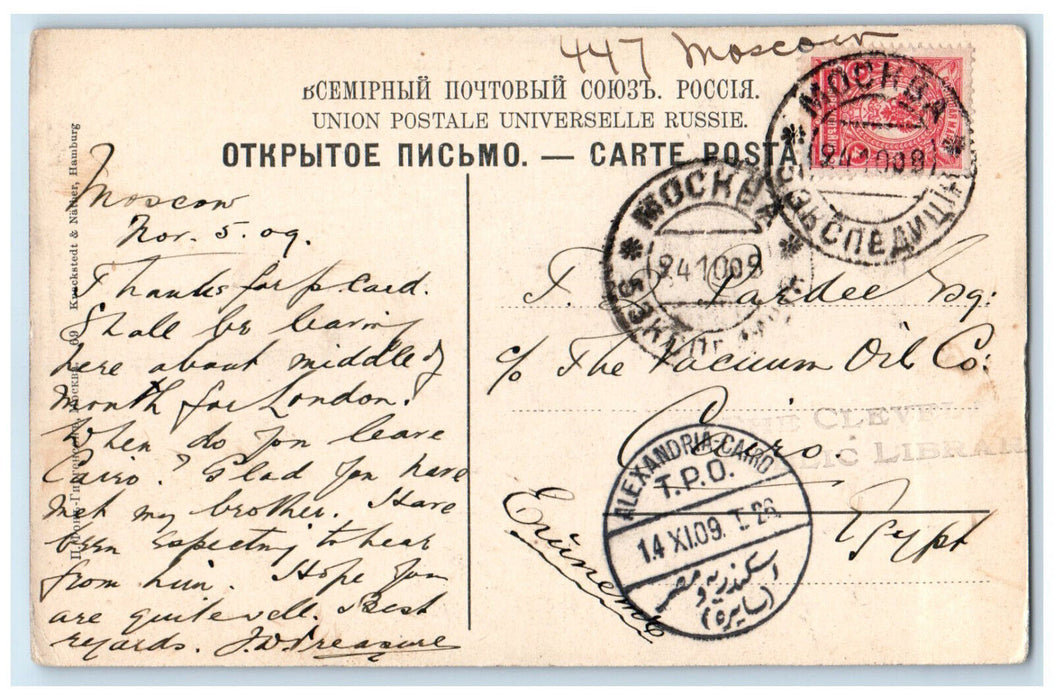 447 Moscow
ВСЕМІРНЫЙ ПОЧТОВЫЙ СОЮЗЪ. РОССІЯ.
UNION POSTALE UNIVERSELLE RUSSIE.
ОТКРЫТОЕ ПИСЬМО. — CARTE POSTA
МОСКВА
24 10 09
ЭКСПЕДИЦІЯ
МОСКВА
24 10 09
Knackstedt & Näther, Hamburg
МОСКВА 69
Moscow
Nov. 5. 09.
Thanks for p card.
Shall be leaving
here about middle of
month for London.
When do you leave
Cairo? Glad you have
met my brother. Have
been expecting to hear
from him. Hope you
are quite well. Best
regards. J.W. Treasure
Pardee Esq:
c/o The Vacuum Oil Co:
Cairo.
Egypt
THE CLEVEL
LIC LIBRAR
ALEXANDRIA-CAIRO
T.P.O.
14 XI.09. T. 26
اسكندرية و مصر
(سايرة)